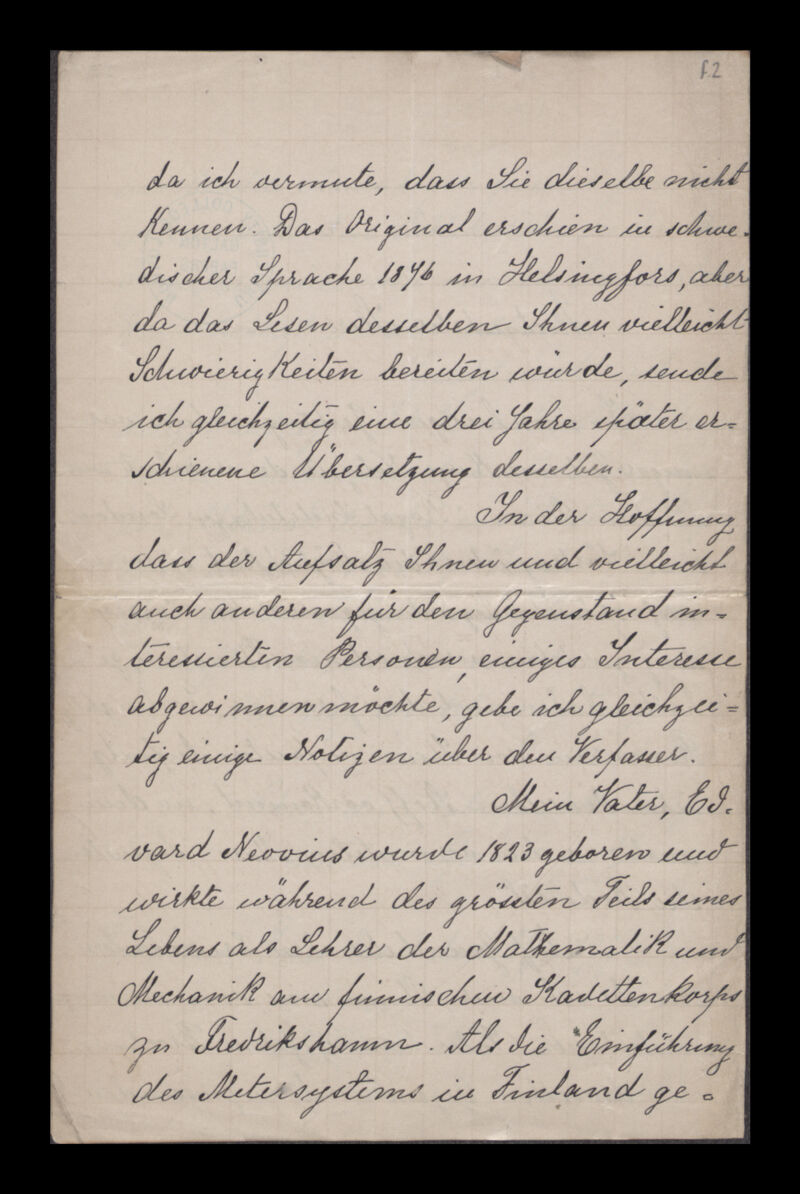 f.2
da ich vermute, dass Sie dieselbe nicht
kennen. Das Original erschien in schwe-
discher Sprache 1876 in Helsingfors, aber
da das Lesen desselben Ihnen vielleicht
Schwierigkeiten bereiten würde, sende
ich gleichzeitig eine drei Jahre später er=
schienene Übersetzung desselben.
In der Hoffnung
dass der Aufsatz Ihnen und vielleicht
auch anderen für den Gegenstand in=
teressierten Personen, einiges Interesse
abgewinnen möchte, gebe ich gleichzei=
tig einige Notizen über den Verfasser.
Mein Vater, Ed=
vard Neovius wurde 1823 geboren und
wirkte während des grössten Teils seines
Lebens als Lehrer der Mathematik und
Mechanik am finnischen Kadettenkorps
zu Fredrikshamn. Als die Einführung
des Metersystems in Finland ge=